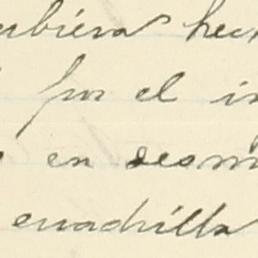 ubiera hec
por el in
en desm
cuadrilla